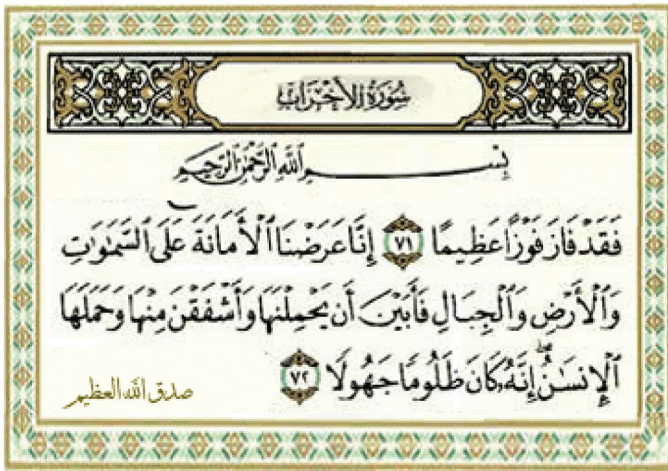 سُورَةُ الأَحْزَابِ
بِسْمِ اللَّهِ الرَّحْمَٰنِ الرَّحِيمِ
فَقَدْ فَازَ فَوْزًا عَظِيمًا ٧١ إِنَّا عَرَضْنَا الْأَمَانَةَ عَلَى السَّمَٰوَٰتِ
وَالْأَرْضِ وَالْجِبَالِ فَأَبَيْنَ أَن يَحْمِلْنَهَا وَأَشْفَقْنَ مِنْهَا وَحَمَلَهَا
الْإِنسَٰنُ ۖ إِنَّهُۥ كَانَ ظَلُومًا جَهُولًا ٧٢
صدق الله العظيم